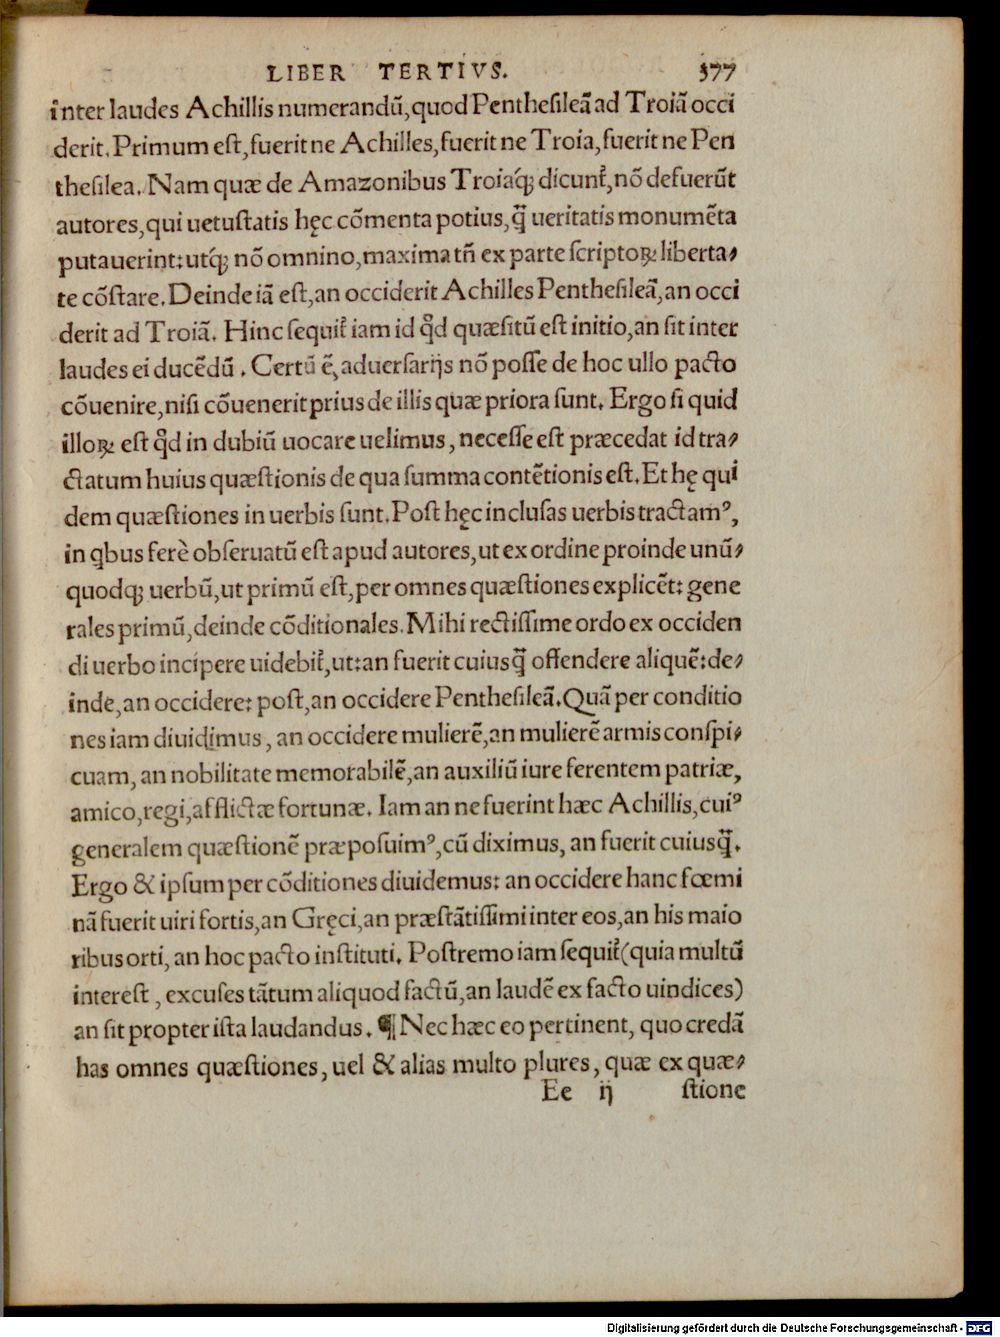 LIBER TERTIVS. 377
inter laudes Achillis numerandũ, quod Pentheſileã ad Troiã occi
derit. Primum eſt, fuerit ne Achilles, fuerit ne Troia, fuerit ne Pen
theſilea. Nam quæ de Amazonibus Troiaq́ꝫ dicunt᷑, nõ defuerũt
autores, qui uetuſtatis hęc cõmenta potius, q̃ ueritatis monumẽta
putauerint: utq́ꝫ nõ omnino, maxima tñ ex parte ſcriptoꝝ liberta⸗
te cõſtare. Deinde iã eſt, an occiderit Achilles Pentheſileã, an occi
derit ad Troiã. Hinc ſequit᷑ iam id qđ quæſitũ eſt initio, an ſit inter
laudes ei ducẽdũ. Certũ ẽ, aduerſarijs nõ poſſe de hoc ullo pacto
cõuenire, niſi cõuenerit prius de illis quæ priora ſunt. Ergo ſi quid
illoꝝ eſt qđ in dubiũ uocare uelimus, neceſſe eſt præcedat id tra⸗
ctatum huius quæſtionis de qua ſumma contẽtionis eſt. Et hę qui
dem quæſtiones in uerbis ſunt. Poſt hęc incluſas uerbis tractamꝰ,
in qbus ferè obſeruatũ eſt apud autores, ut ex ordine proinde unũ⸗
quodqꝫ uerbũ, ut primũ eſt, per omnes quæſtiones explicẽt: gene
rales primũ, deinde cõditionales. Mihi rectiſſime ordo ex occiden
di uerbo incipere uidebit᷑, ut: an fuerit cuiusq̃ offendere aliquẽ: de⸗
inde, an occidere: poſt, an occidere Pentheſileã. Quã per conditio
nes iam diuidimus, an occidere mulierẽ, an mulierẽ armis conſpi⸗
cuam, an nobilitate memorabilẽ, an auxiliũ iure ferentem patriæ,
amico, regi, afflictæ fortunæ. Iam an ne fuerint hæc Achillis, cuiꝰ
generalem quæſtionẽ præpoſuimꝰ, cũ diximus, an fuerit cuiusq̃.
Ergo & ipſum per cõditiones diuidemus: an occidere hanc fœmi
nã fuerit uiri fortis, an Gręci, an præſtãtiſſimi inter eos, an his maio
ribus orti, an hoc pacto inſtituti. Poſtremo iam ſequit᷑ (quia multũ
intereſt, excuſes tãtum aliquod factũ, an laudẽ ex facto uindices)
an ſit propter iſta laudandus. ¶ Nec hæc eo pertinent, quo credã
has omnes quæſtiones, uel & alias multo plures, quæ ex quæ⸗
Ee ij ſtione
Digitalisierung gefördert durch die Deutsche Forschungsgemeinschaft - DFG